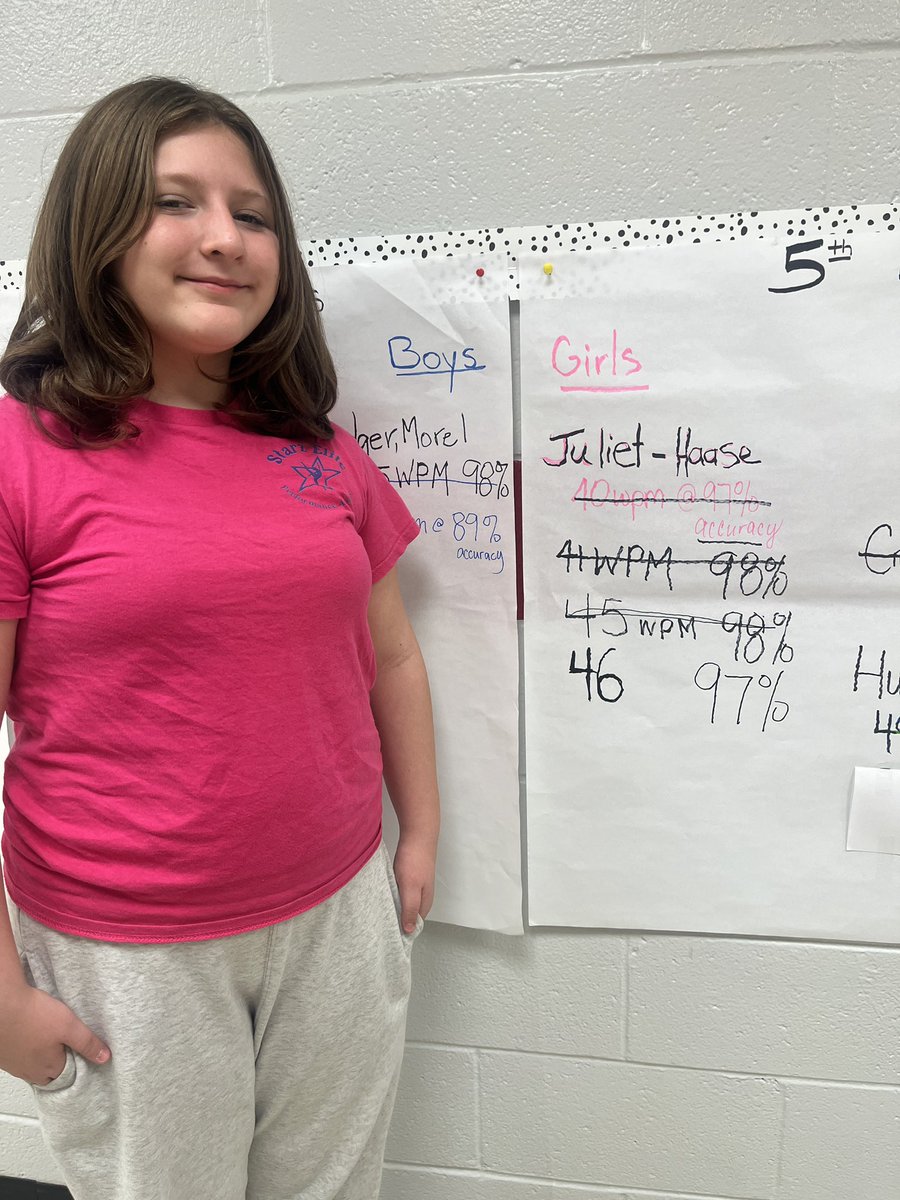 Start Elite
5th
Boys
ger, Morel
5 WPM 98%
m @ 89%
accuracy
Girls
Juliet-Haase
40 wpm @ 97%
accuracy
41 WPM 98%
45 WPM 98%
46 97%
Hu